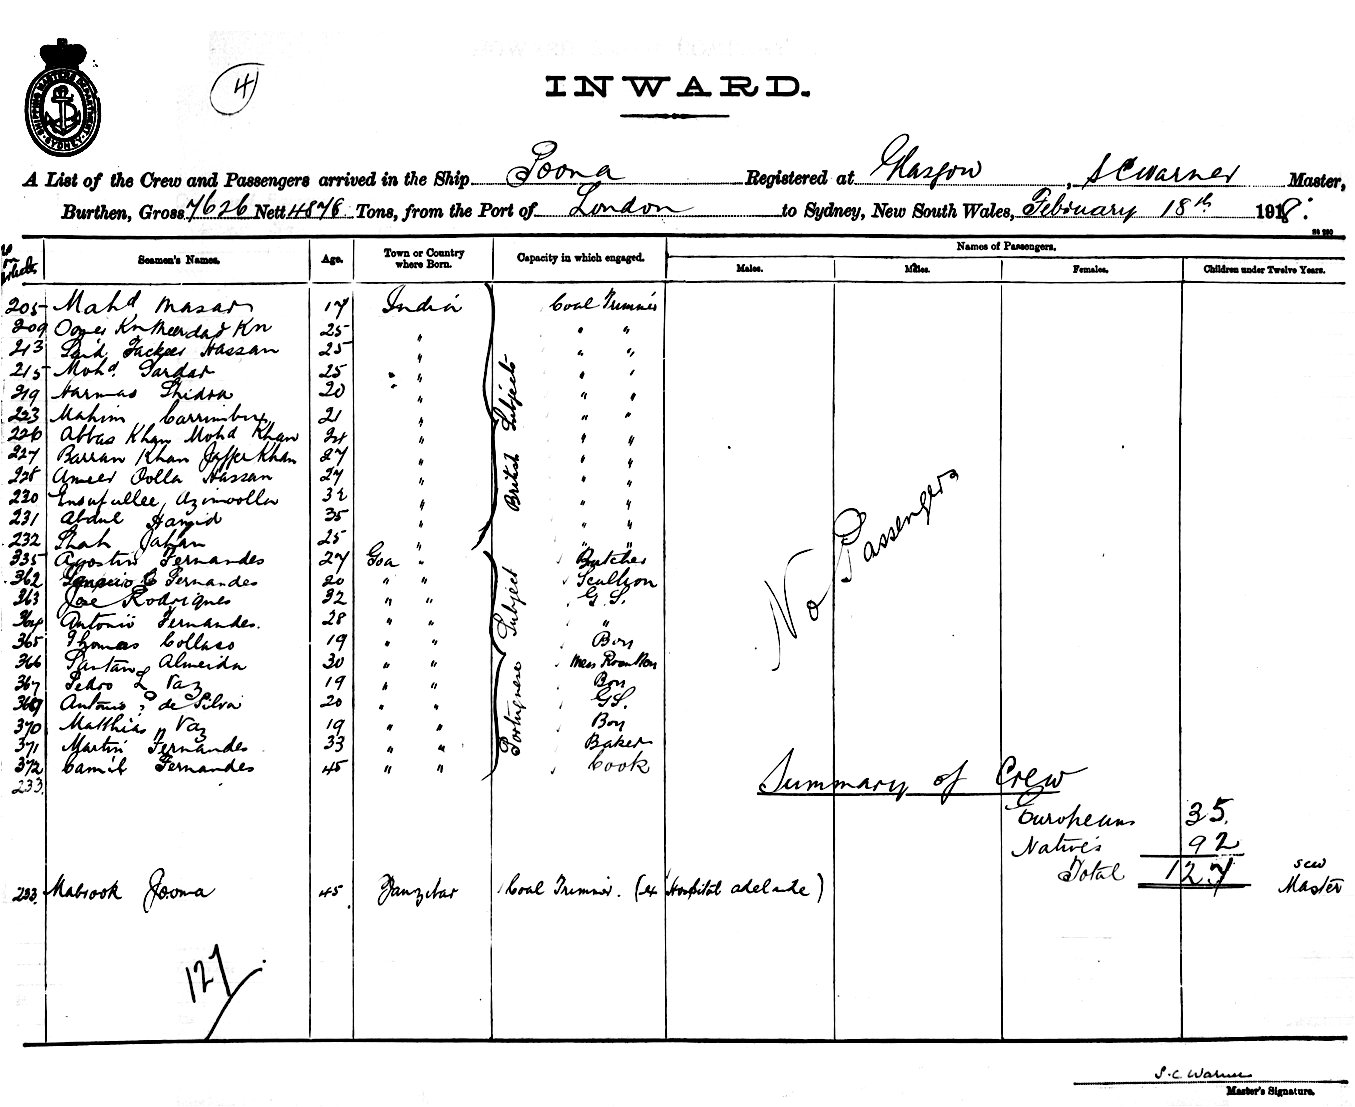 4
SHIPPING MASTERS DEPARTMENT SYDNEY
INWARD.
A List of the Crew and Passengers arrived in the Ship Poona Registered at Glasgow, S C Warner Master,
Burthen, Gross 7626 Nett 4876 Tons, from the Port of London to Sydney, New South Wales, February 18th 1918.
Names of Passengers.
Seamen's Names. Age. Town or Country where Born. Capacity in which engaged. Males. Males. Females. Children under Twelve Years.
205 Mahd Masar 17 India Coal Trimmer
209 Kn Kn 25 " " "
213 Said Hassan 25 " " "
215 Mohd. Sardar 25 " " "
219 20 " " "
223 Mahim 21 " " "
226 Abbas Khan Mohd Khan " " "
227 Barran Khan Jaffer Khan 27 " " "
228 Ameer Oolla Hassan 27 " " "
230 Azimoolla 32 " " "
231 Abdul Hamid 35 " " "
232 Shah Jahan 25 " " "
British Subjects
335 Agostin Fernandes 27 Goa " Butcher
362 Fernandes 20 " " Scullion
363 Joe Rodrigues 32 " " G. S.
364 Antonio Fernandes. 28 " " "
365 Thomas Collaso 19 " " Boy
366 Almeida 30 " " Mess Room Boy
367 Pedro Vaz 19 " " Boy
369 Antonio de Silva 20 " " G.S.
370 Matthias Vaz 19 " " Boy
371 Martin Fernandes 33 " " Baker
372 Camil Fernandes 45 " " Cook
233
Portuguese Subject
No Passengers
Summary of Crew
Europeans 35.
Natives 92
Total 127
scw
Master
233. Mabrook Jooma 45 Zanzibar Coal Trimmer. (ex Hospital Adelaide)
127
S. C. Warner
Master's Signature.